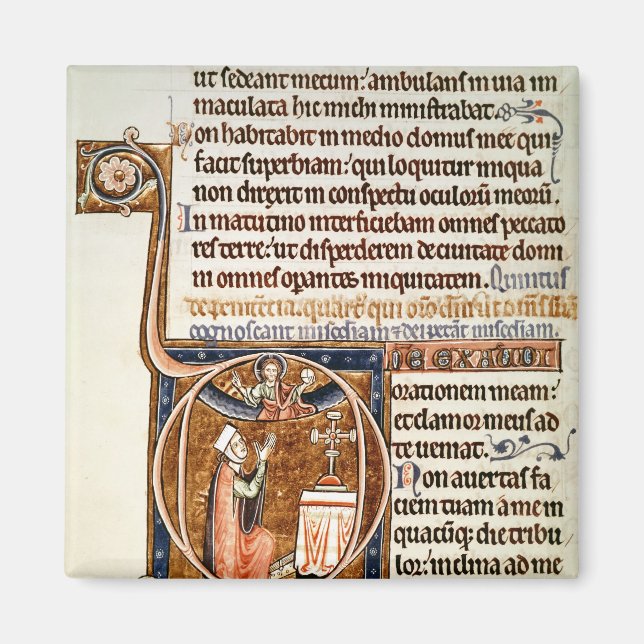 ut sedeant mecum: ambulans in uia im
maculata hic michi ministrabat.
Non habitabit in medio domus mee qui
facit superbiam: qui loquitur iniqua
non direxit in conspectu oculorū meorū.
In matutino interficiebam omnes peccato
res terre: ut disperderem de ciuitate domi
ni omnes operantes iniquitatem. Quintus
de penitēcia.
cognoscant
DNE EXAUDI
orationem meam:
et clamor meus ad
te ueniat.
Non auertas fa
ciem tuam a me in
quacūq; die tribu
lor: inclina ad me